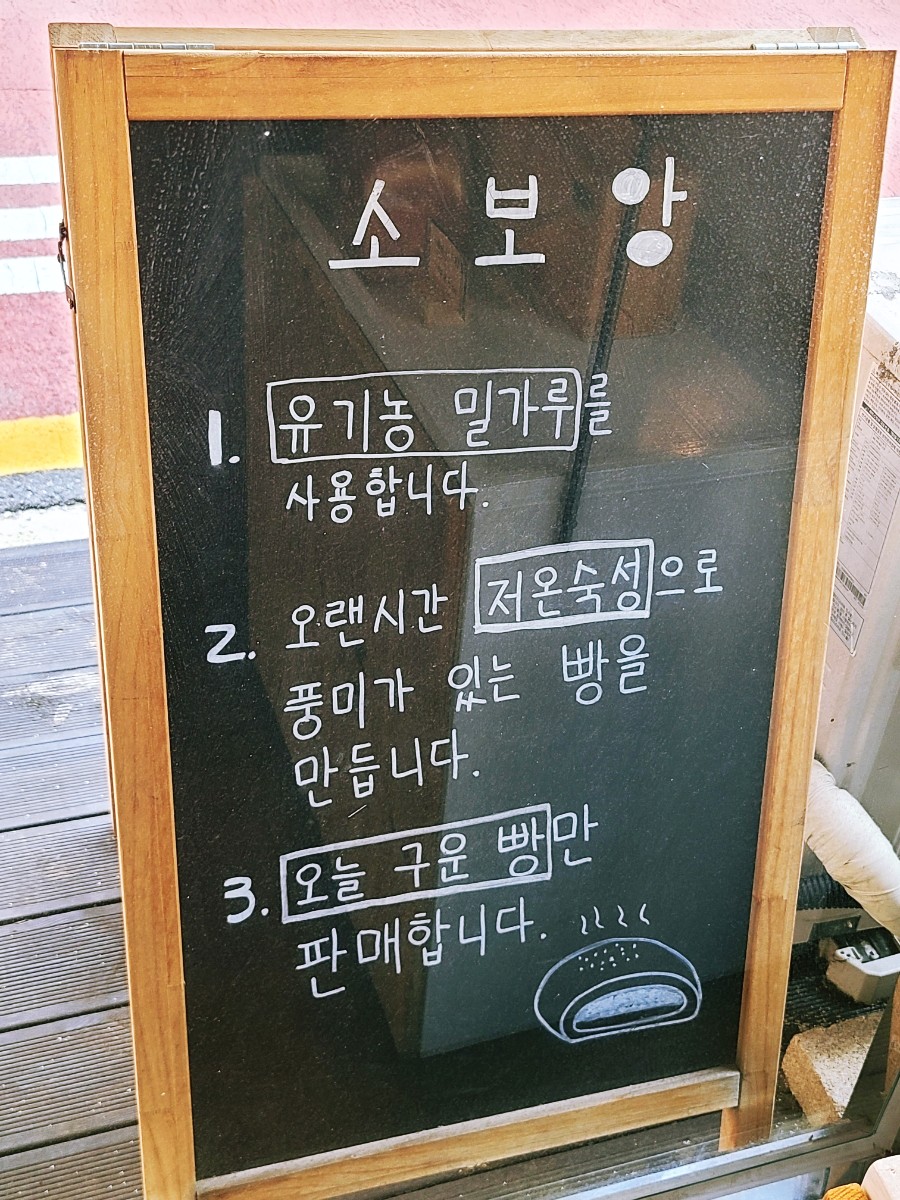 소보앙
1. 유기농 밀가루를
사용합니다.
2. 오랜시간 저온숙성으로
풍미가 있는 빵을
만듭니다.
3. 오늘 구운 빵만
판매합니다.